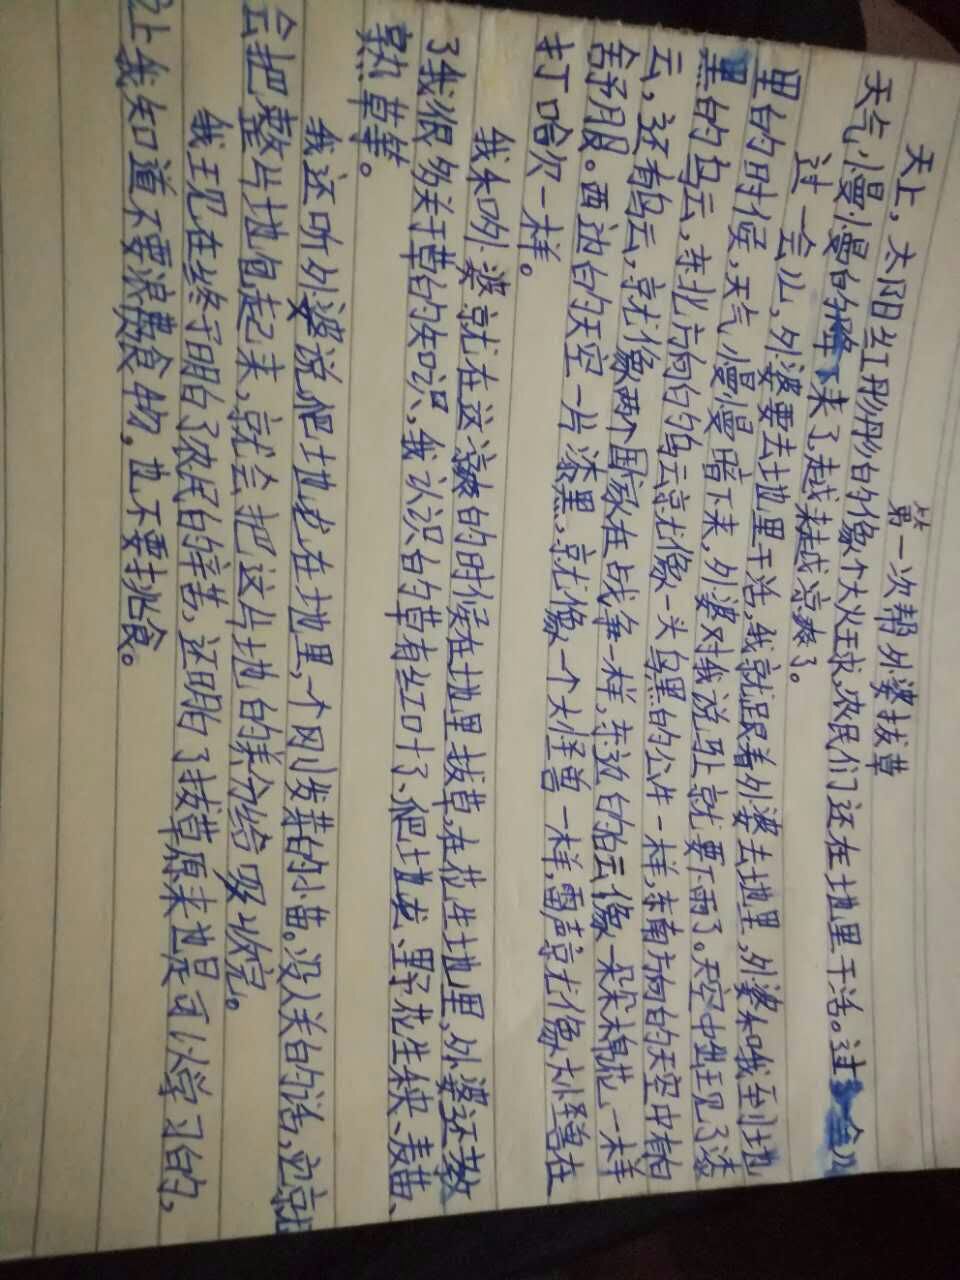 第一次帮外婆拔草
天上,太阳红彤彤的像个大火球,农民们还在地里干活。过一会儿
天气慢慢的降下来了,越来越凉爽了。
过一会儿,外婆要去地里干活,我就跟着外婆去地里,外婆和我到地
里的时候,天气慢慢暗下来,外婆对我说马上就要下雨了。天空中出现了漆
黑的乌云,东北方向的乌云就像一头乌黑的公牛一样,东南方向的天空中有白
云,还有乌云,就像两个国家在战争一样,东边的白云像一朵朵棉花一样
舒服。西边的天空一片漆黑,就像一个大怪兽一样,雷声就像大怪兽在
打哈欠一样。
我和外婆就在这凉爽的时候在地里拔草,在花生地里,外婆还教
了我很多关于草的知识,我认识的草有红叶子、爬地龙、野花生秧、麦苗、
熟草等。
我还听外婆说,爬地龙在地里,一个刚发芽的小苗。没人关的话,它就
会把整片地包起来,就会把这片地的养分给吸收完。
我现在终于明白了农民的辛苦,还明白了拔草原来也是可以学习的,
让我知道不要浪费食物,也不要挑食。